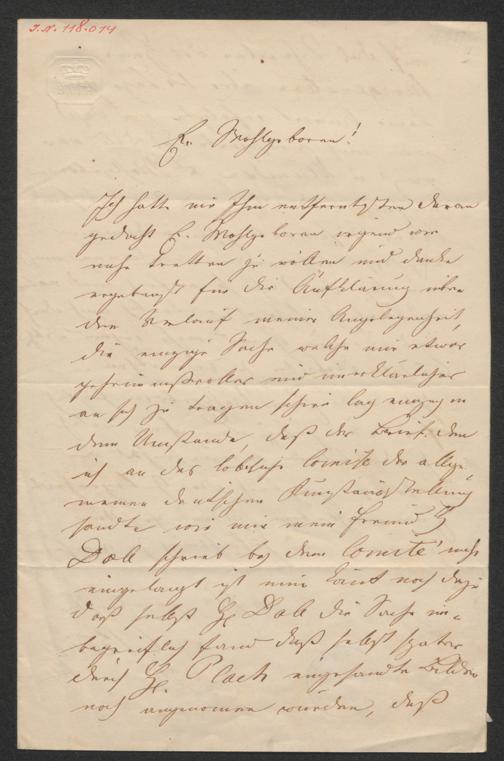 J.N. 118.014
Er. Wohlgeboren!
Ich hatte nie Ihm entferntesten daran
gedacht E. Wohlgeboren irgend wie
nahe tretten zu wollen und danke
ergebenst für die Aufklärung über
den Verlauf meiner Angelegenheit,
die einzige Sache welche mir etwas
geheimnißvolles und unerklärliches
an sich zu tragen schien lag einzig in
dem Umstande, daß der Brief den
ich an das löbliche Comité der allge
meinen deutschen Kunstausstellung
sandte wie mir mein Freund
Doll schrieb bey dem Comité nicht
eingelangt ist und kömt noch dazu
daß selbst H. Doll die Sache un=
begreiflich fand daß selbst später
durch H. Plach eingesandte Bilder
noch angenomen wurden, daß